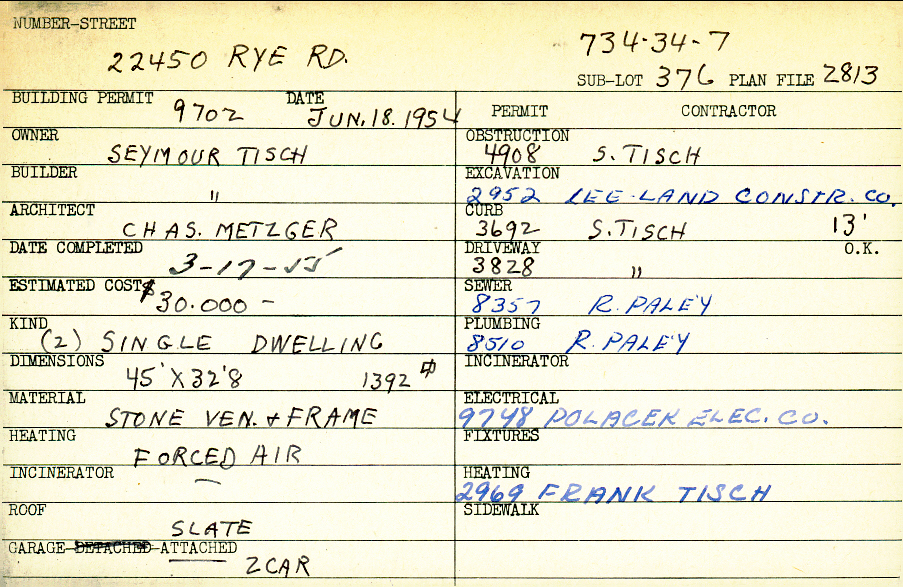 NUMBER-STREET
22450 RYE RD.
734-34-7
SUB-LOT 376 PLAN FILE 2813
BUILDING PERMIT 9702 DATE JUN. 18. 1954
OWNER
SEYMOUR TISCH
BUILDER
"
ARCHITECT
CHAS. METZGER
DATE COMPLETED
3-17-55
ESTIMATED COST $30.000 -
KIND
(2) SINGLE DWELLING
DIMENSIONS
45' X 32'8 1392
MATERIAL
STONE VEN. & FRAME
HEATING
FORCED AIR
INCINERATOR
—
ROOF
SLATE
GARAGE-DETACHED-ATTACHED
2 CAR
PERMIT CONTRACTOR
OBSTRUCTION
4908 S. TISCH
EXCAVATION
2952 LEE-LAND CONSTR. CO.
CURB
3692 S. TISCH 13'
DRIVEWAY O.K.
3828 "
SEWER
8357 R. PALEY
PLUMBING
8510 R. PALEY
INCINERATOR
ELECTRICAL
9748 POLACEK ELEC. CO.
FIXTURES
HEATING
2969 FRANK TISCH
SIDEWALK